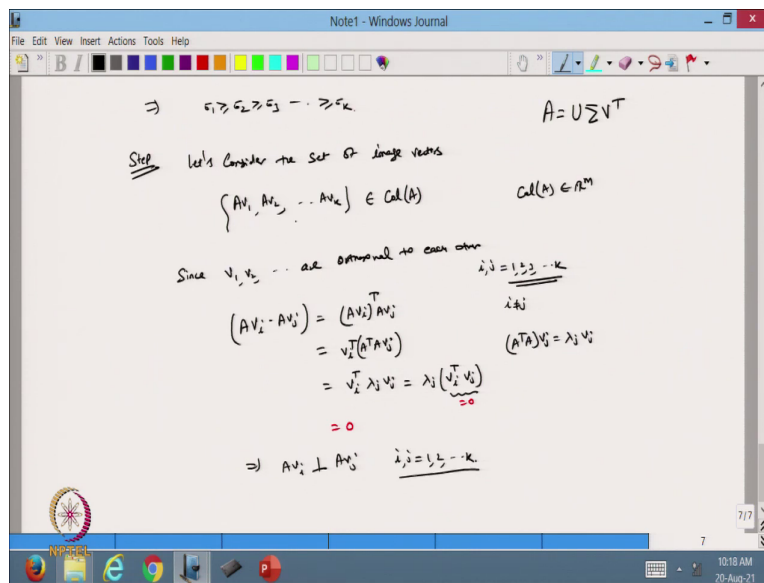 Note1 - Windows Journal
File Edit View Insert Actions Tools Help
B I
⇒ σ1 ≥ σ2 ≥ σ3 --- ≥ σk
A = U Σ V^T
Step Let's Consider the set of image vectors
{Av1, Av2, .. Avk} ∈ Col(A)
Col(A) ∈ R^m
Since v1, v2, .. are orthogonal to each other
i,j = 1,2,3, ..k
i≠j
(Avi · Avj) = (Avi)^T Avj
= vi^T (A^T A vj)
(A^T A) vj = λj vj
= vi^T λj vj = λj (vi^T vj)
=0
= 0
⇒ Avi ⊥ Avj i,j = 1,2, --k.
7/7
7
NPTEL
10:18 AM
20-Aug-21